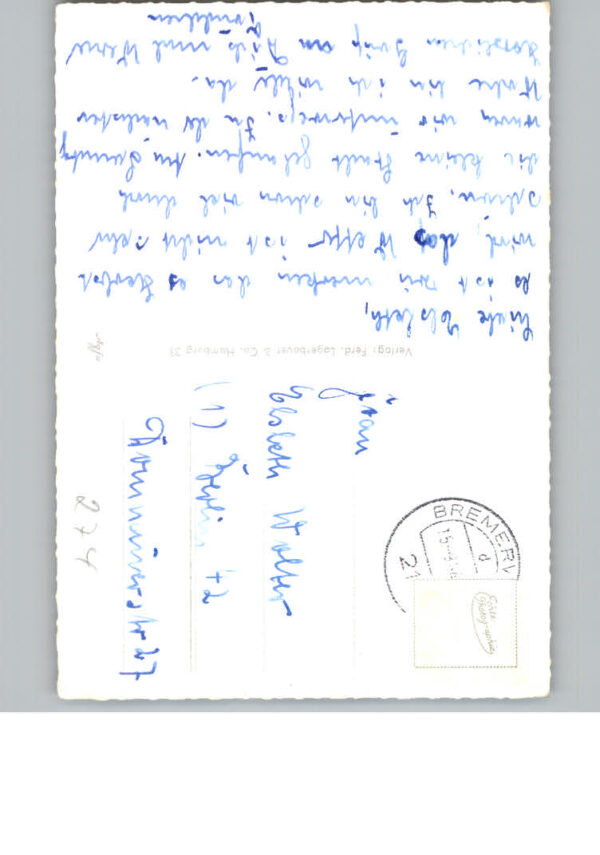 Liebe Elsbeth,
es ist zu merken das es Herbst
wird, das Wetter ist nicht sehr
schön. Ich bin schon viel durch
die kleine Stadt gelaufen. Am Sonntag
waren wir unterwegs. In der nächsten
Woche bin ich wieder da.
Herzlichen Gruß an Dich und Werner
Verlag: Ferd. Lagerbauer & Co. Hamburg 31
Frau
Elsbeth Wolter
(1) Berlin 42
27
274
BREMERV
d
21
Echte
Photographie